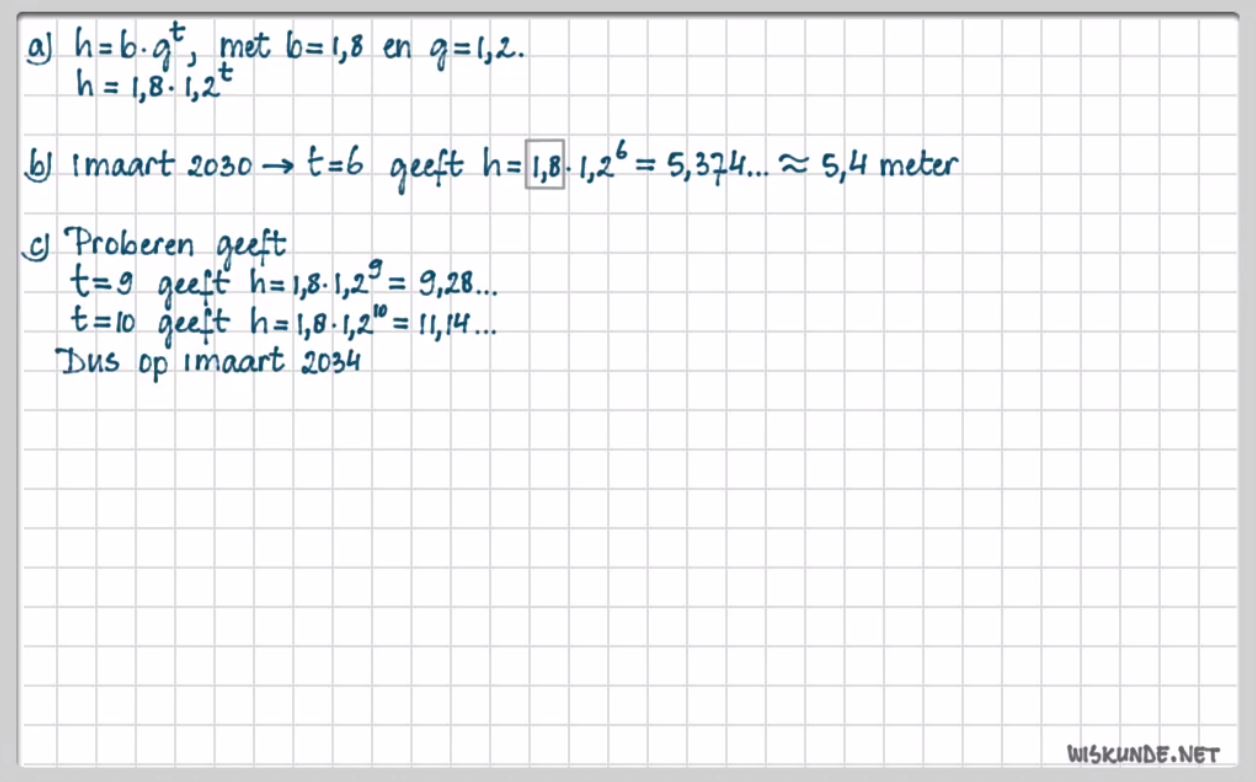 a) h = b · g^t, met b = 1,8 en g = 1,2.
h = 1,8 · 1,2^t
b) 1 maart 2030 → t = 6 geeft h = 1,8 · 1,2^6 = 5,374... ≈ 5,4 meter
c) Proberen geeft
t = 9 geeft h = 1,8 · 1,2^9 = 9,28...
t = 10 geeft h = 1,8 · 1,2^10 = 11,14...
Dus op 1 maart 2034
WISKUNDE.NET